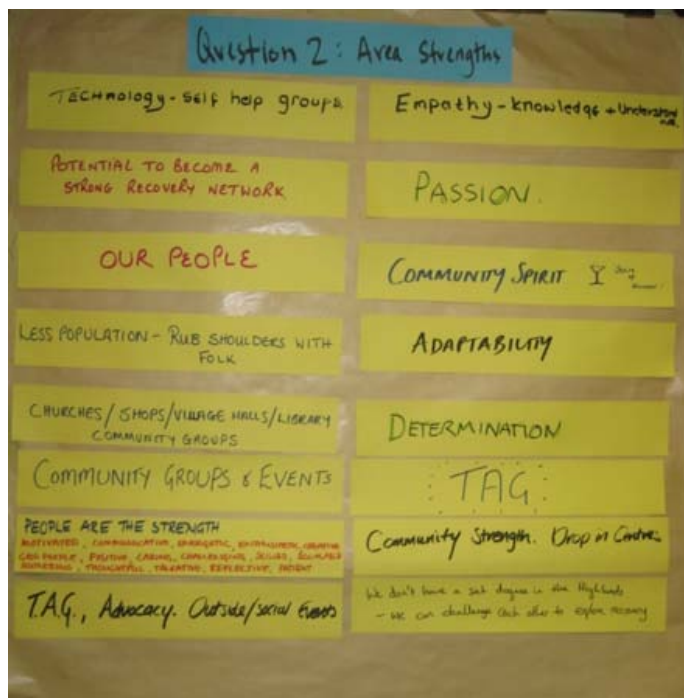 Question 2: Area Strengths
TECHNOLOGY - Self help groups
POTENTIAL TO BECOME A
STRONG RECOVERY NETWORK
OUR PEOPLE
LESS POPULATION - RUB SHOULDERS WITH
FOLK
CHURCHES/SHOPS/VILLAGE HALLS/LIBRARY
COMMUNITY GROUPS
COMMUNITY GROUPS & EVENTS
PEOPLE ARE THE STRENGTH
MOTIVATED, COMMUNICATIVE, ENERGETIC, CREATIVE
POSITIVE, CARING, SKILLED
THOUGHTFUL, REFLECTIVE, PATIENT
T.A.G., Advocacy. Outside/social Events
Empathy - knowledge +
PASSION.
COMMUNITY SPIRIT
ADAPTABILITY
DETERMINATION
TAG
Community Strength. Drop in Centres
We don't have a set in the Highlands
- We can challenge each other to explore recovery